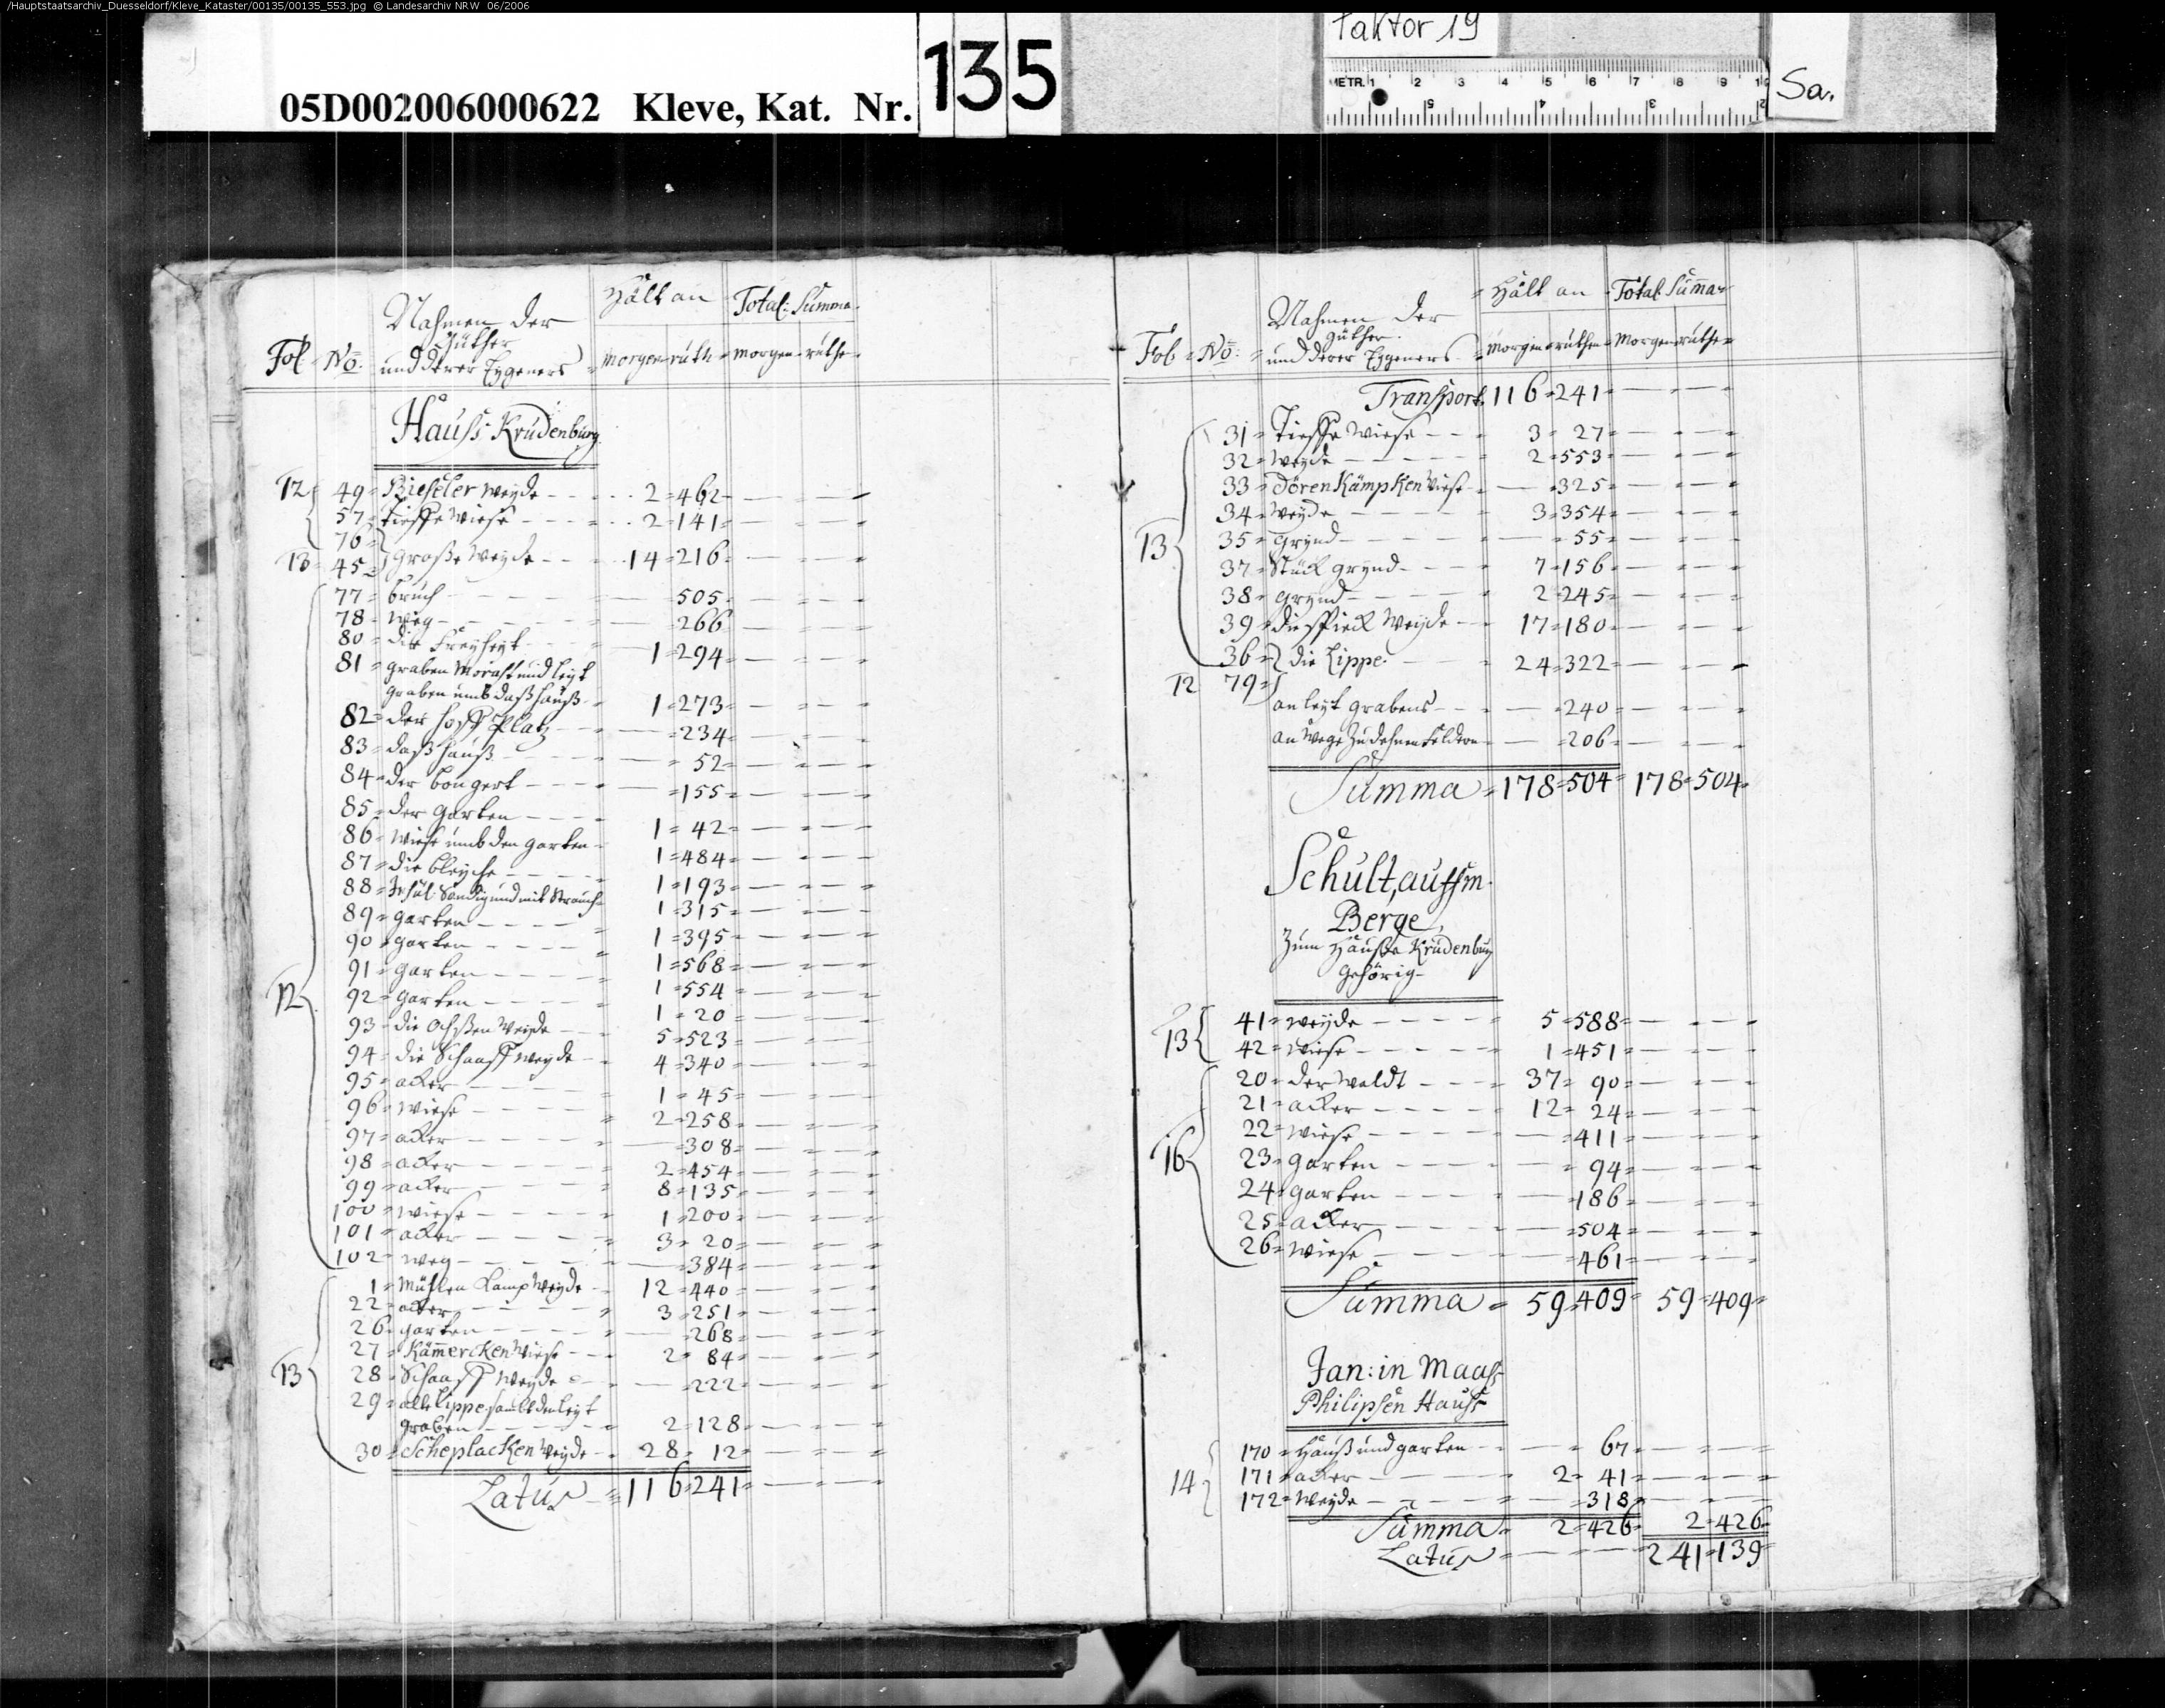 /Hauptstaatsarchiv_Duesseldorf/Kleve_Kataster/00135/00135_553.jpg © Landesarchiv NRW 06/2006
05D002006000622 Kleve, Kat. Nr. 135
Faktor 19
METR. 1 2 3 4 5 6 7 8 9 10
Sa.
Fol = No: = Nahmen der Güther und derer Eygeners = Hält an Morgen = ruth = Total: Summa Morgen = ruthe
Hauss Krudenburg
12 49 = Bieseler weyde 2 = 462
57 = tieffe wiese 2 = 141
76 =
13 = 45 = große weyde 14 = 216
77 = bruch 505
78 = weg 266
80 = die Freyheyt 1 = 294
81 = graben Morast und leyt
graben umb daß hauß 1 = 273
82 = der hoff Platz 234
83 = daß hauß 52
84 = der bongert 155
85 = der Garten 1 = 42
86 = wiese umb den garten 1 = 484
87 = die bleyche 1 = 193
88 = Sandig und mit Strauch 1 = 315
89 = garten 1 = 395
90 = garten 1 = 568
91 = garten 1 = 554
12 92 = garten 1 = 20
93 = die Ochßen weyde 5 = 523
94 = die Schaaff weyde 4 = 340
95 = acker 1 = 45
96 = wiese 2 = 258
97 = acker 308
98 = acker 2 = 454
99 = acker 8 = 135
100 = wiese 1 = 200
101 = acker 3 = 20
102 = weg 384
1 = Mühlen Kamp weyde 12 = 440
22 = acker 3 = 251
26 = garten 268
13 27 = Kämmercken wiese 2 = 84
28 = Schaaff weyde 222
29 = alte Lippe sambt den leyt
graben 2 = 128
30 = Scheplacken weyde 28 = 12
Latus 116 = 241
Fol = No: = Nahmen der Güther und derer Eygeners Hält an Morgen = ruthen Total: Summa Morgen = ruthen
Transport 116 = 241
31 = Tieffe wiese 3 = 27
32 = weyde 2 = 553
33 = Dören Kämpken wiese 325
34 = weyde 3 = 354
13 35 = grynd 55
37 = Stück grynd 7 = 156
38 = grynd 2 = 245
39 = die Spieck weyde 17 = 180
36 = die Lippe 24 = 322
12 79 =
an leyt grabens 240
an wege zu dehnen 206
Summa = 178 = 504 178 = 504
Schult, auffm
Berge,
Zum Hauße Krudenburg
gehörig
13 41 = weyde 5 = 588
42 = wiese 1 = 451
20 = der waldt 37 = 90
21 = acker 12 = 24
22 = wiese 411
16 23 = garten 94
24 = garten 186
25 = acker 504
26 = wiese 461
Summa = 59 = 409 59 = 409
Jan: in Maas
Philipsen Hauß
170 = Hauß und garten 67
14 171 = acker 2 = 41
172 = weyde 318
Summa 2 = 426 2 = 426
Latus 241 = 139